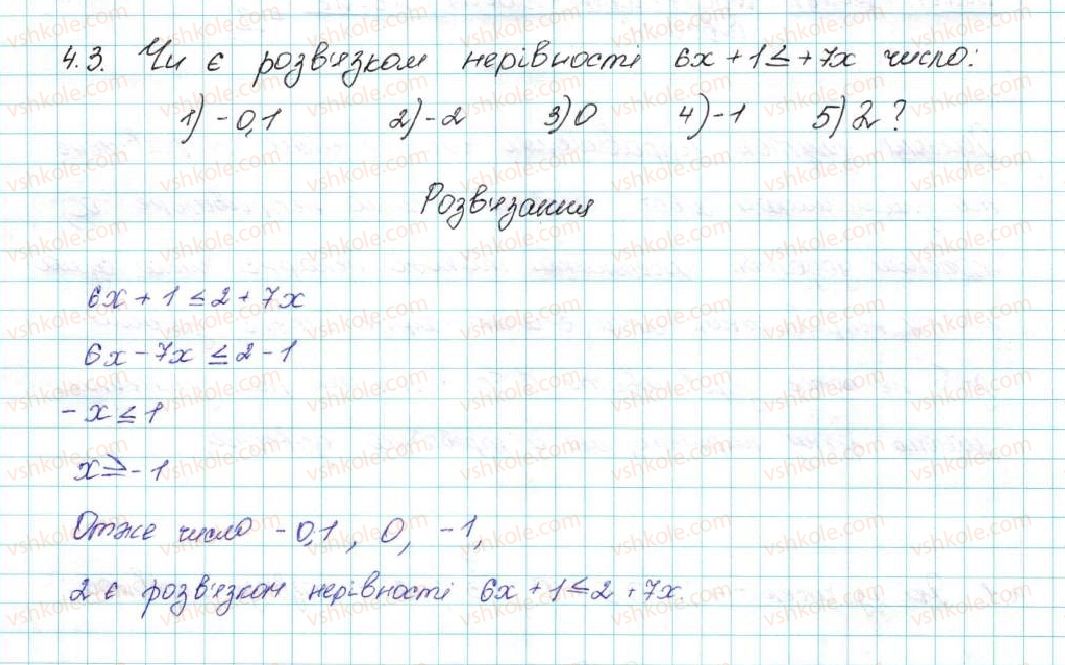 4.3. Чи є розв'язком нерівності 6x + 1 ≤ + 7x число:
1) -0,1 2) -2 3) 0 4) -1 5) 2 ?
Розв'язання
6x + 1 ≤ 2 + 7x
6x - 7x ≤ 2 - 1
- x ≤ 1
x ≥ - 1
Отже число -0,1, 0, -1,
2 є розв'язком нерівності 6x + 1 ≤ 2 + 7x.